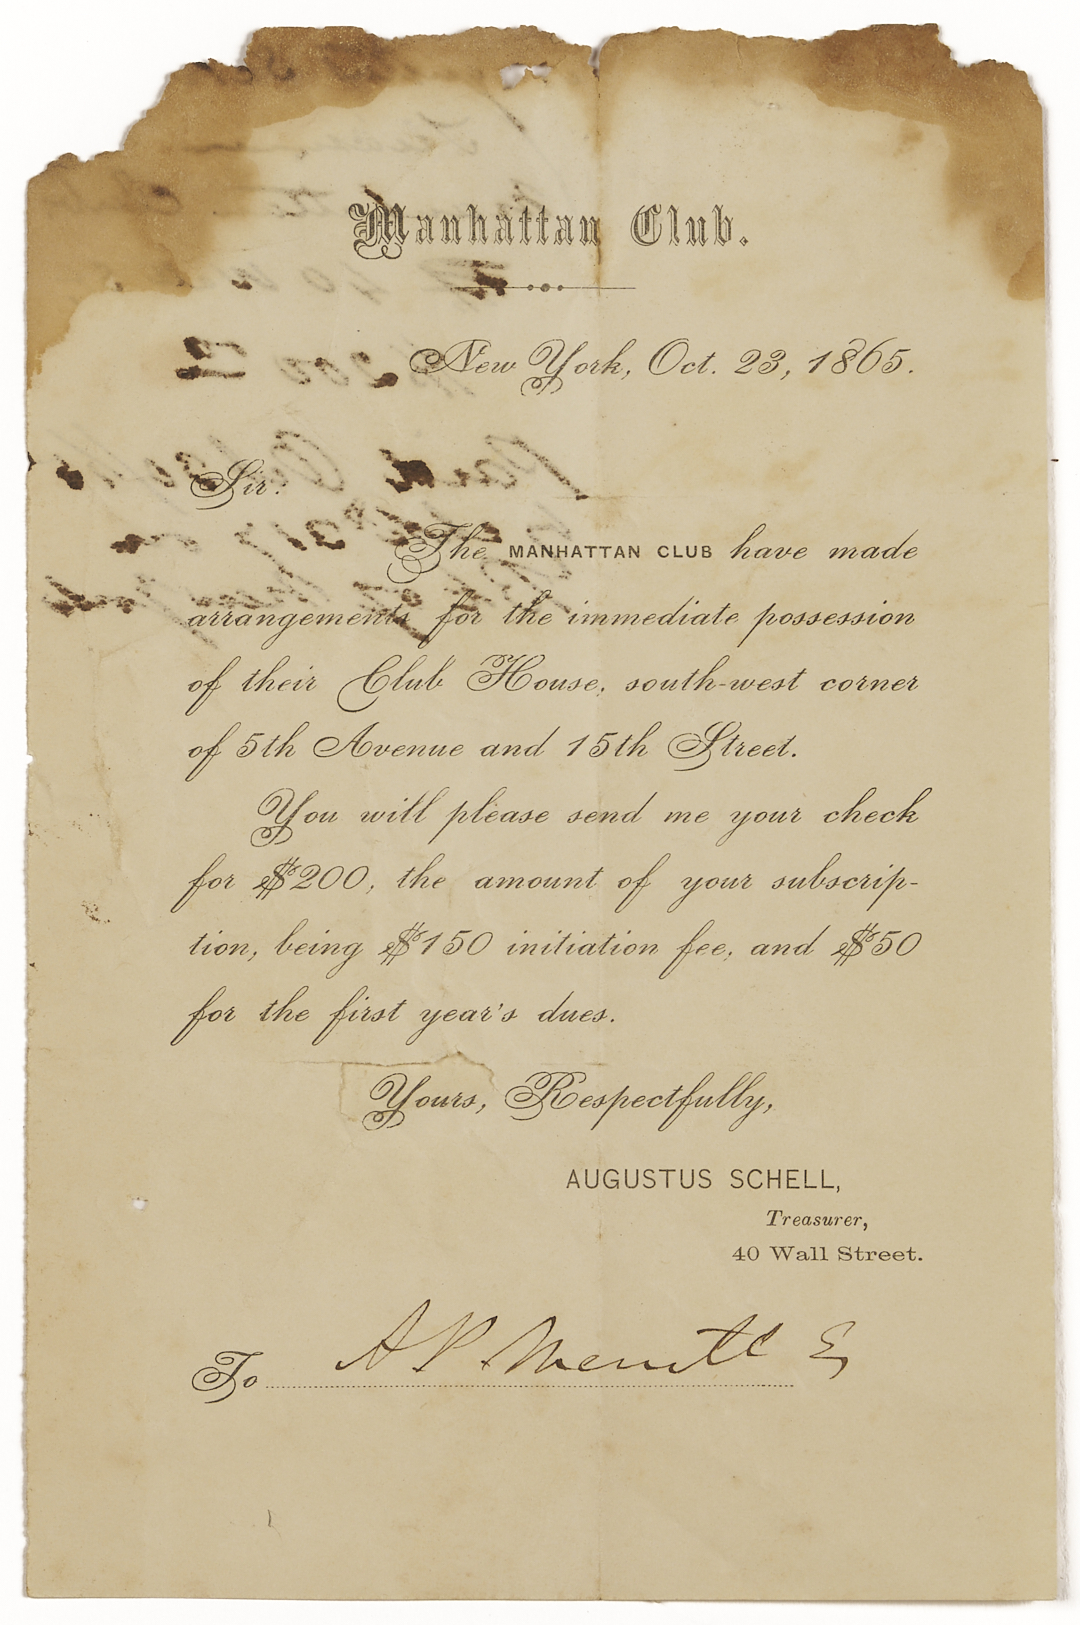 Manhattan Club.
New York, Oct. 23, 1865.
Sir:
The MANHATTAN CLUB have made
arrangements for the immediate possession
of their Club House, south-west corner
of 5th Avenue and 15th Street.
You will please send me your check
for $200, the amount of your subscrip-
tion, being $150 initiation fee, and $50
for the first year's dues.
Yours, Respectfully,
AUGUSTUS SCHELL,
Treasurer,
40 Wall Street.
To A P Merritt E